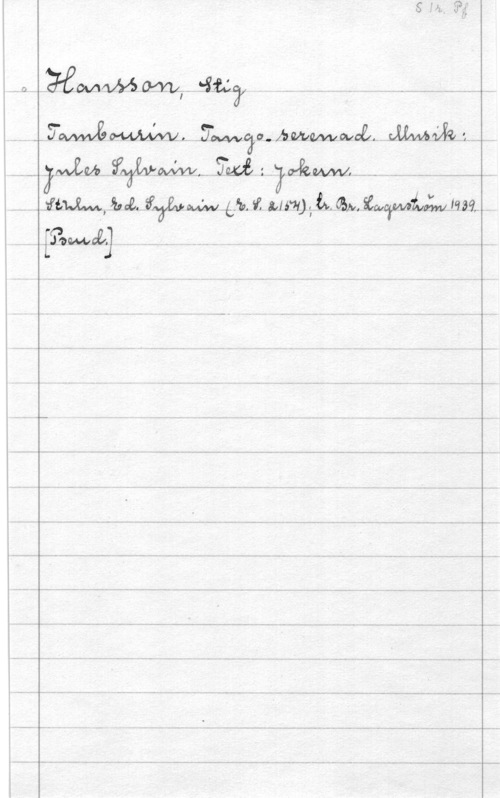 S 1r. Pf
Hansson, Stig
Tambourin. Tango-serenad. Musik:
Jules Sylvain. Text: Jokern.
Sthlm, Ed. Sylvain (E. S. 2154); tr. Br. Lagerström 1939.
[Pseud.]